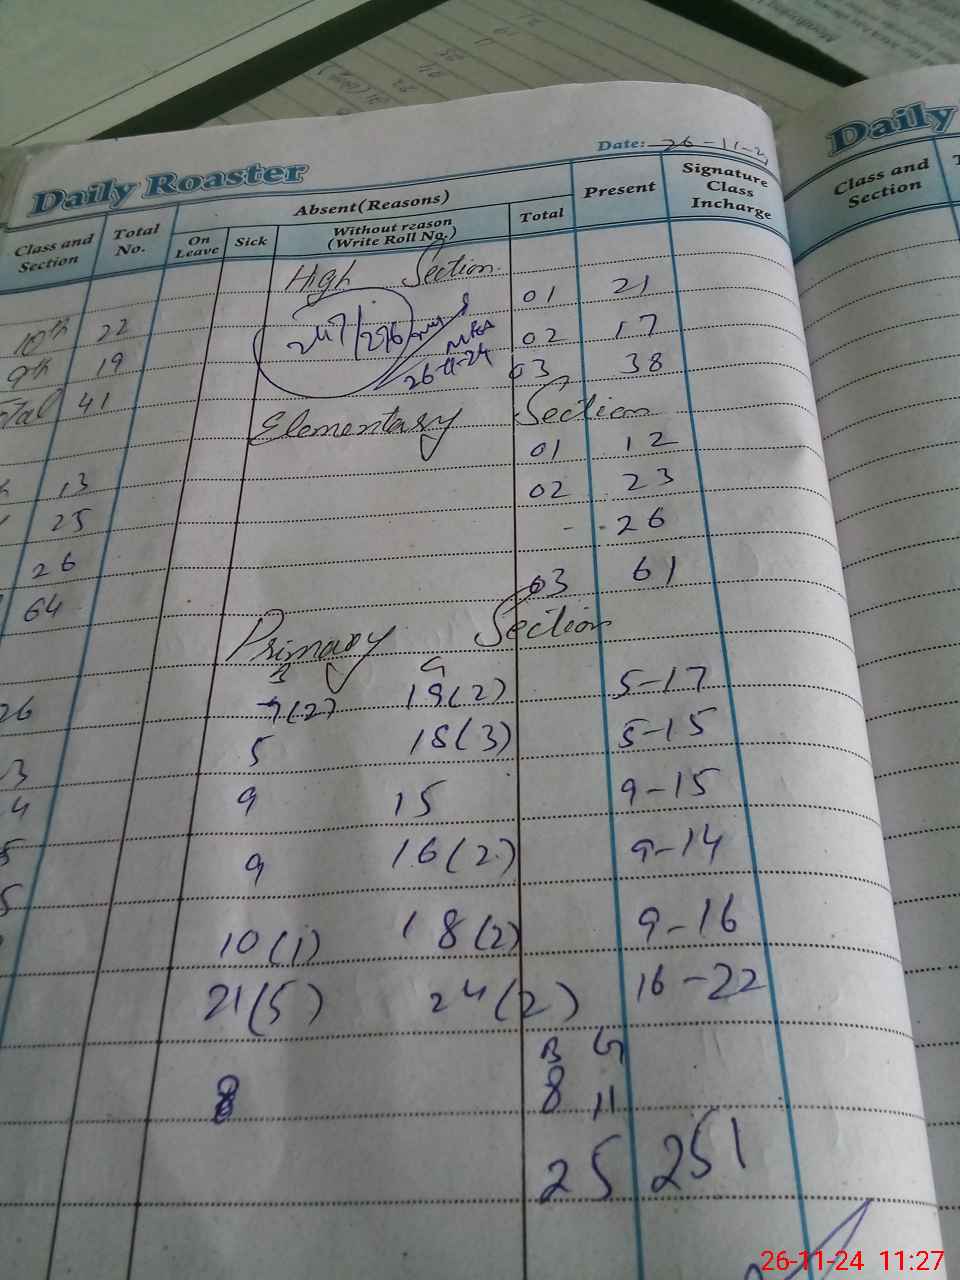 Daily Roaster
Date: 26-11-24
Daily
Class and Section
Total No.
Absent (Reasons)
On Leave
Sick
Without reason (Write Roll No.)
Total
Present
Signature Class Incharge
Class and Section
High Section
10th 22 01 21
9th 19 02 17
Total 41 03 38
247/276
26-11-24
Elementary Section
13 01 12
25 02 23
26 - 26
64 03 61
Primary Section
B G
26 7(2) 19(2) 5-17
3 5 18(3) 5-15
4 9 15 9-15
5 9 16(2) 9-14
5 10(1) 18(2) 9-16
21(5) 24(2) 16-22
B G
8 8 11
25 251
26-11-24 11:27